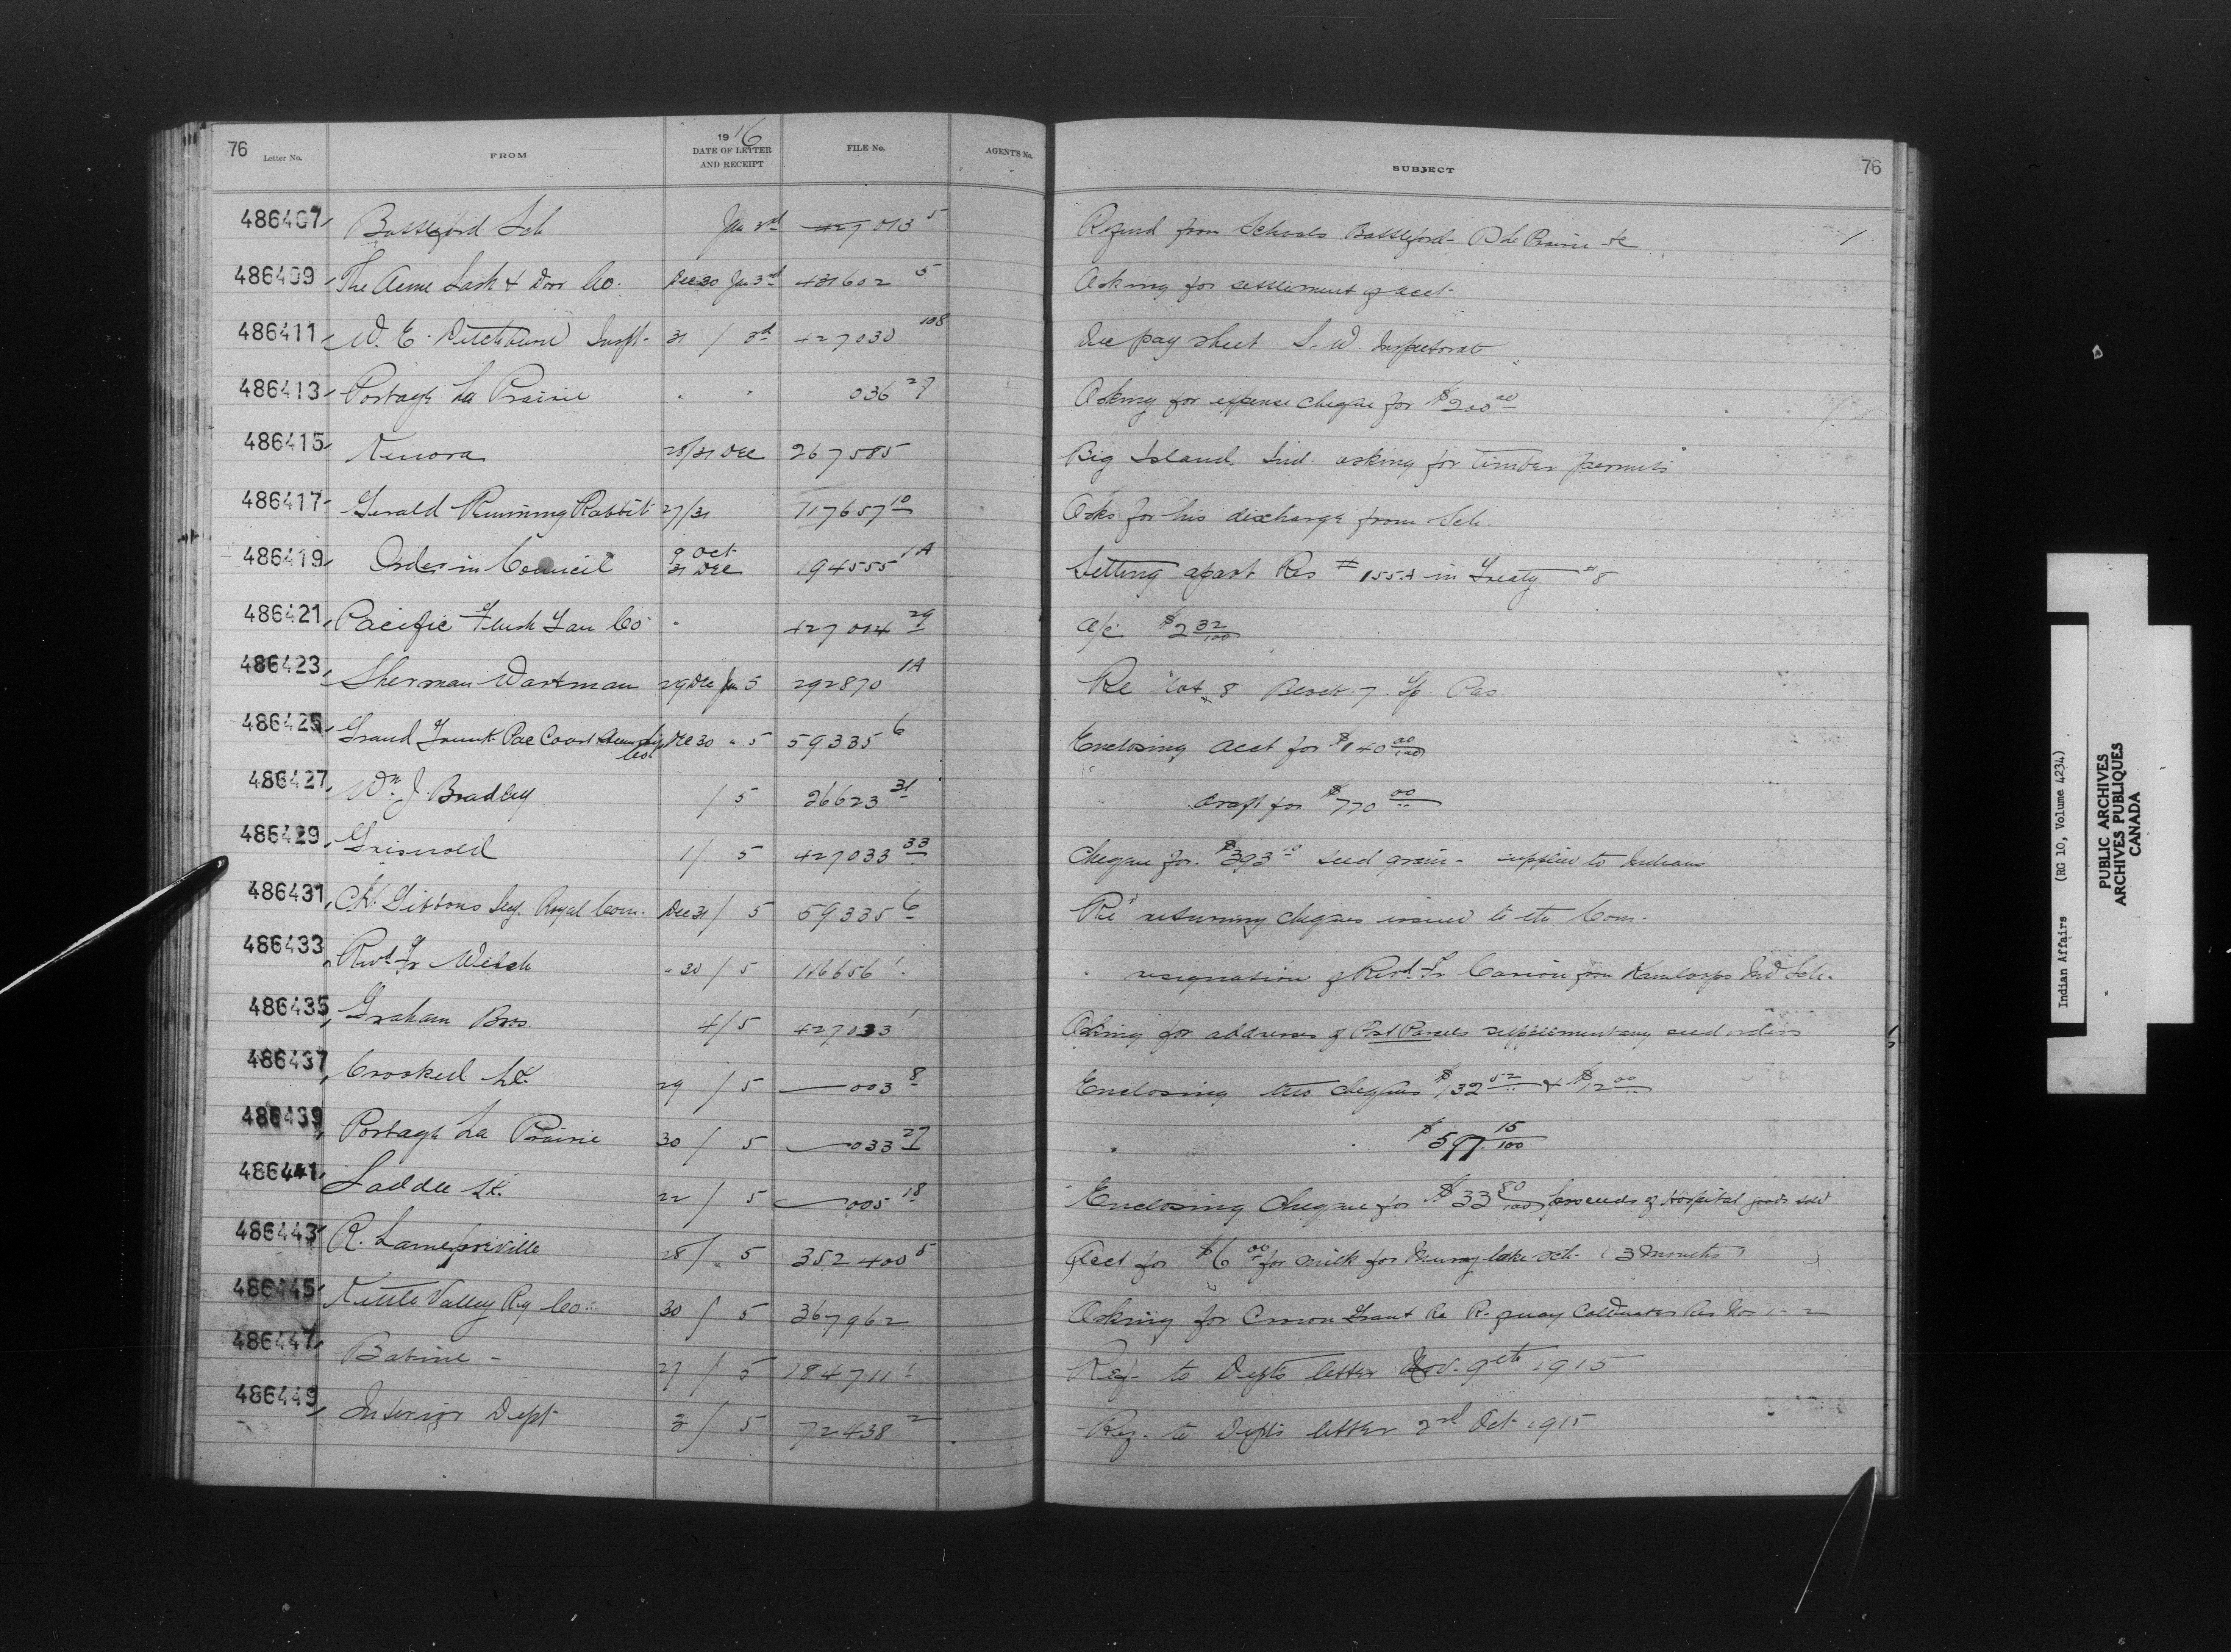 76
Letter No. FROM 1916 DATE OF LETTER AND RECEIPT FILE No. AGENT'S No. SUBJECT 76
486407 Battleford Sch Jan 3rd 427013 5 Refund from Schools Battleford - P de Prairie &c
486409 The Acme Sash & Door Co. Dec 30 Jan 3rd 431602 5 Asking for settlement of acct
486411 W. E. Ditchburn Inspt. 31 / 3rd 427030 108 Dec pay sheet S. W. Inspectorate
486413 Portage La Prairie " " 036 27 Asking for expense cheque for $200 00
486415 Kenora 28/31 Dec 267585 Big Island Ind. asking for timber permits
486417 Gerald Running Rabbit 27/31 117657 10 Asks for his discharge from Sch.
486419 Order in Council 9 Oct 31 Dec 194555 1A Setting apart Res #155A in Treaty #8
486421 Pacific Flush Tan Co " 427014 29 a/c $2 32/100
486423 Sherman Wartman 29 Dec Jan 5 292870 1A Re Lot 8 Block 7
486425 Grand Trunk Pac Coast Steamship Co. Dec 30 " 5 59335 6 Enclosing acct for $140 00/100
486427 Wm J. Bradley / 5 26623 31 " draft for $770 00
486429 Griswold 1/ 5 427033 33 Cheque for $393 10 seed grain - supplied to Indians
486431 C.H. Gibbons Secy. Royal Com. Dec 31/ 5 59335 6 Re returning cheques issued to the Com.
486433 Revd Fr Welch " 30 / 5 116656 1 " resignation of Revd Fr Carion from Kamloops Ind Sch.
486435 Graham Bros. 4/5 427033 1 Asking for addresses of Post Parcels supplementary seed orders
486437 Crooked Lk. 29 / 5 — 003 8 Enclosing two cheques $132 52 & $12 00
486439 Portage La Prairie 30 / 5 — 033 27 " " $597 15/100
486441 Saddle Lk. 22 / 5 — 005 18 Enclosing Cheque for $33 80/100 proceeds of Hospital goods sold
486443 R. 28/ 5 352400 5 Acct for $6 00 for milk for lake sch. (3 months)
486445 Kettle Valley Ry Co. 30 / 5 367962 Asking for Crown Grant Re R. of way Coldwater Res Nos 1 - 2
486447 Babine - 27 / 5 184711 1 Ref. to Depts letter Nov. 9th 1915
486449 Interior Dept 3/ 5 72438 2 Ref. to Depts letter 2nd Oct 1915
Indian Affairs (RG 10, Volume 4234)
PUBLIC ARCHIVES
ARCHIVES PUBLIQUES
CANADA